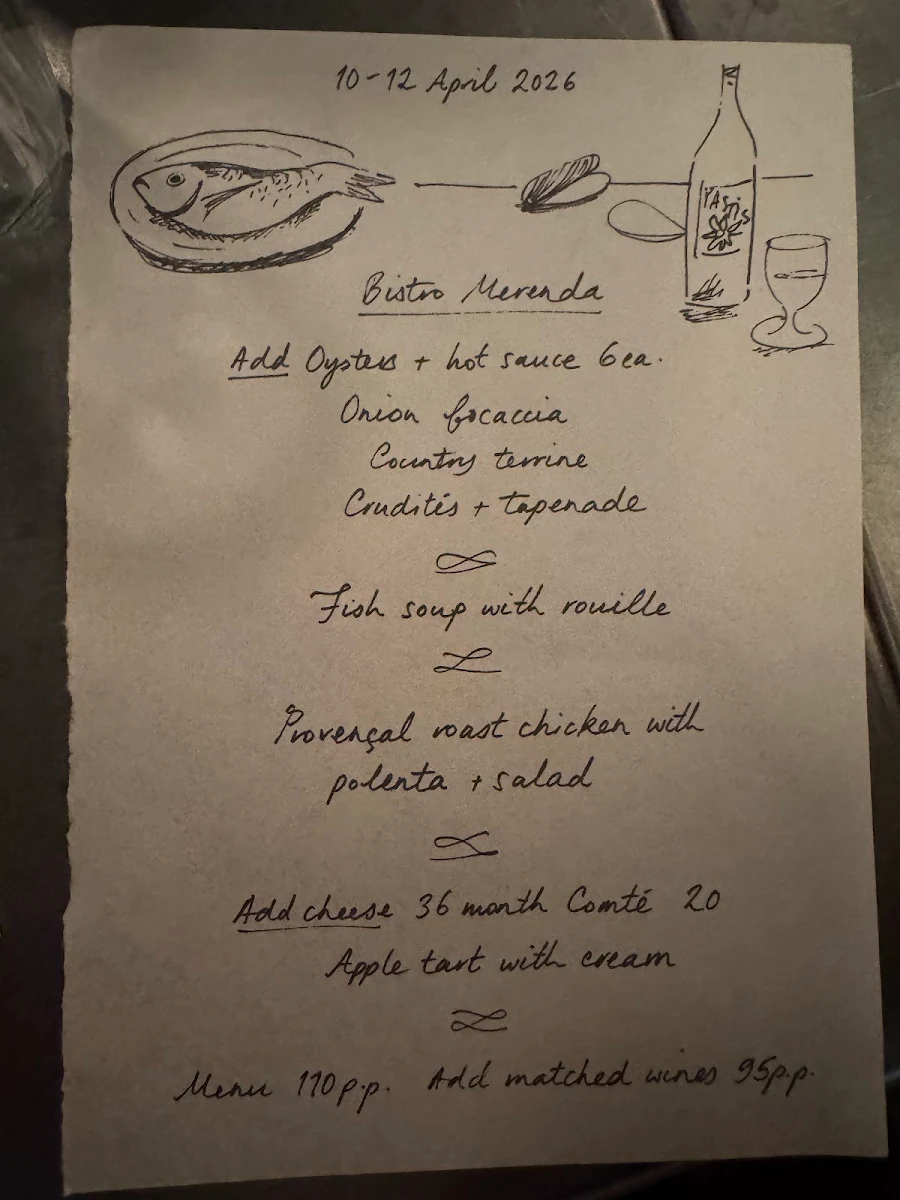 10-12 April 2026
PASTIS
Bistro Merenda
Add Oysters + hot sauce 6ea.
Onion focaccia
Country terrine
Crudités + tapenade
Fish soup with rouille
Provençal roast chicken with
polenta + salad
Add cheese 36 month Comté 20
Apple tart with cream
Menu 110p.p. Add matched wines 95p.p.